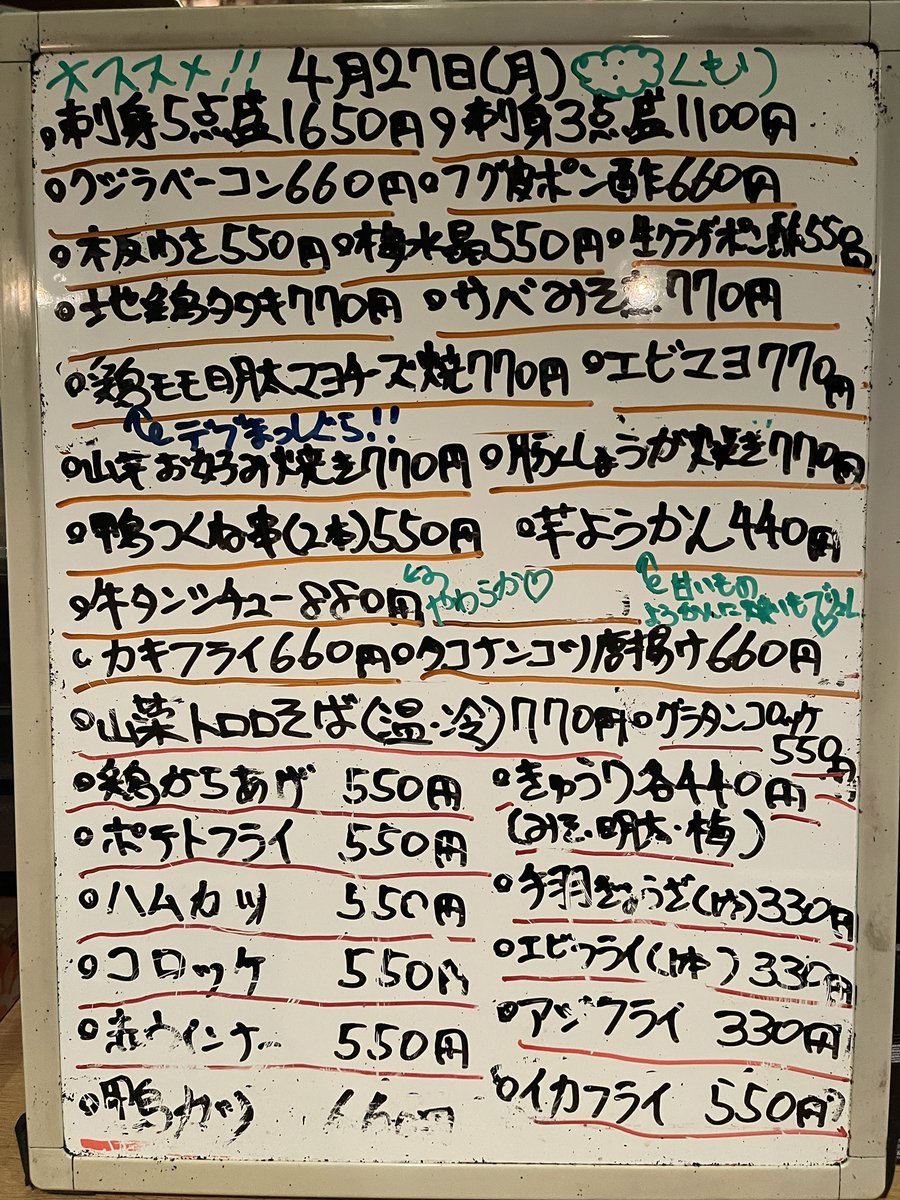 オススメ!! 4月27日(月) くもり
刺身5点盛1650円 刺身3点盛1100円
クジラベーコン660円 フグ皮ポン酢660円
板わさ550円 梅水晶550円 牛クラゲポン酢550円
地鶏タタキ770円 サバみそ煮770円
鶏モモ明太マヨチーズ焼770円 エビマヨ770円
デブまっしぐら!!
山芋お好み焼き770円 豚しょうが焼き770円
鴨つくね串(2本)550円 芋ようかん440円
牛タンシチュー880円 やわらか♡ 甘いもの
カキフライ660円 タコナンコツ唐揚げ660円
山菜トロロそば(温・冷)770円 グラタンコロッケ
550円
鶏からあげ 550円 きゅうり各440円
(みそ・明太・梅)
ポテトフライ 550円
ハムカツ 550円 手羽ぎょうざ(1ケ)330円
コロッケ 550円 エビフライ(1本)330円
赤ウインナー 550円 アジフライ 330円
鴨カツ 660円 イカフライ 550円